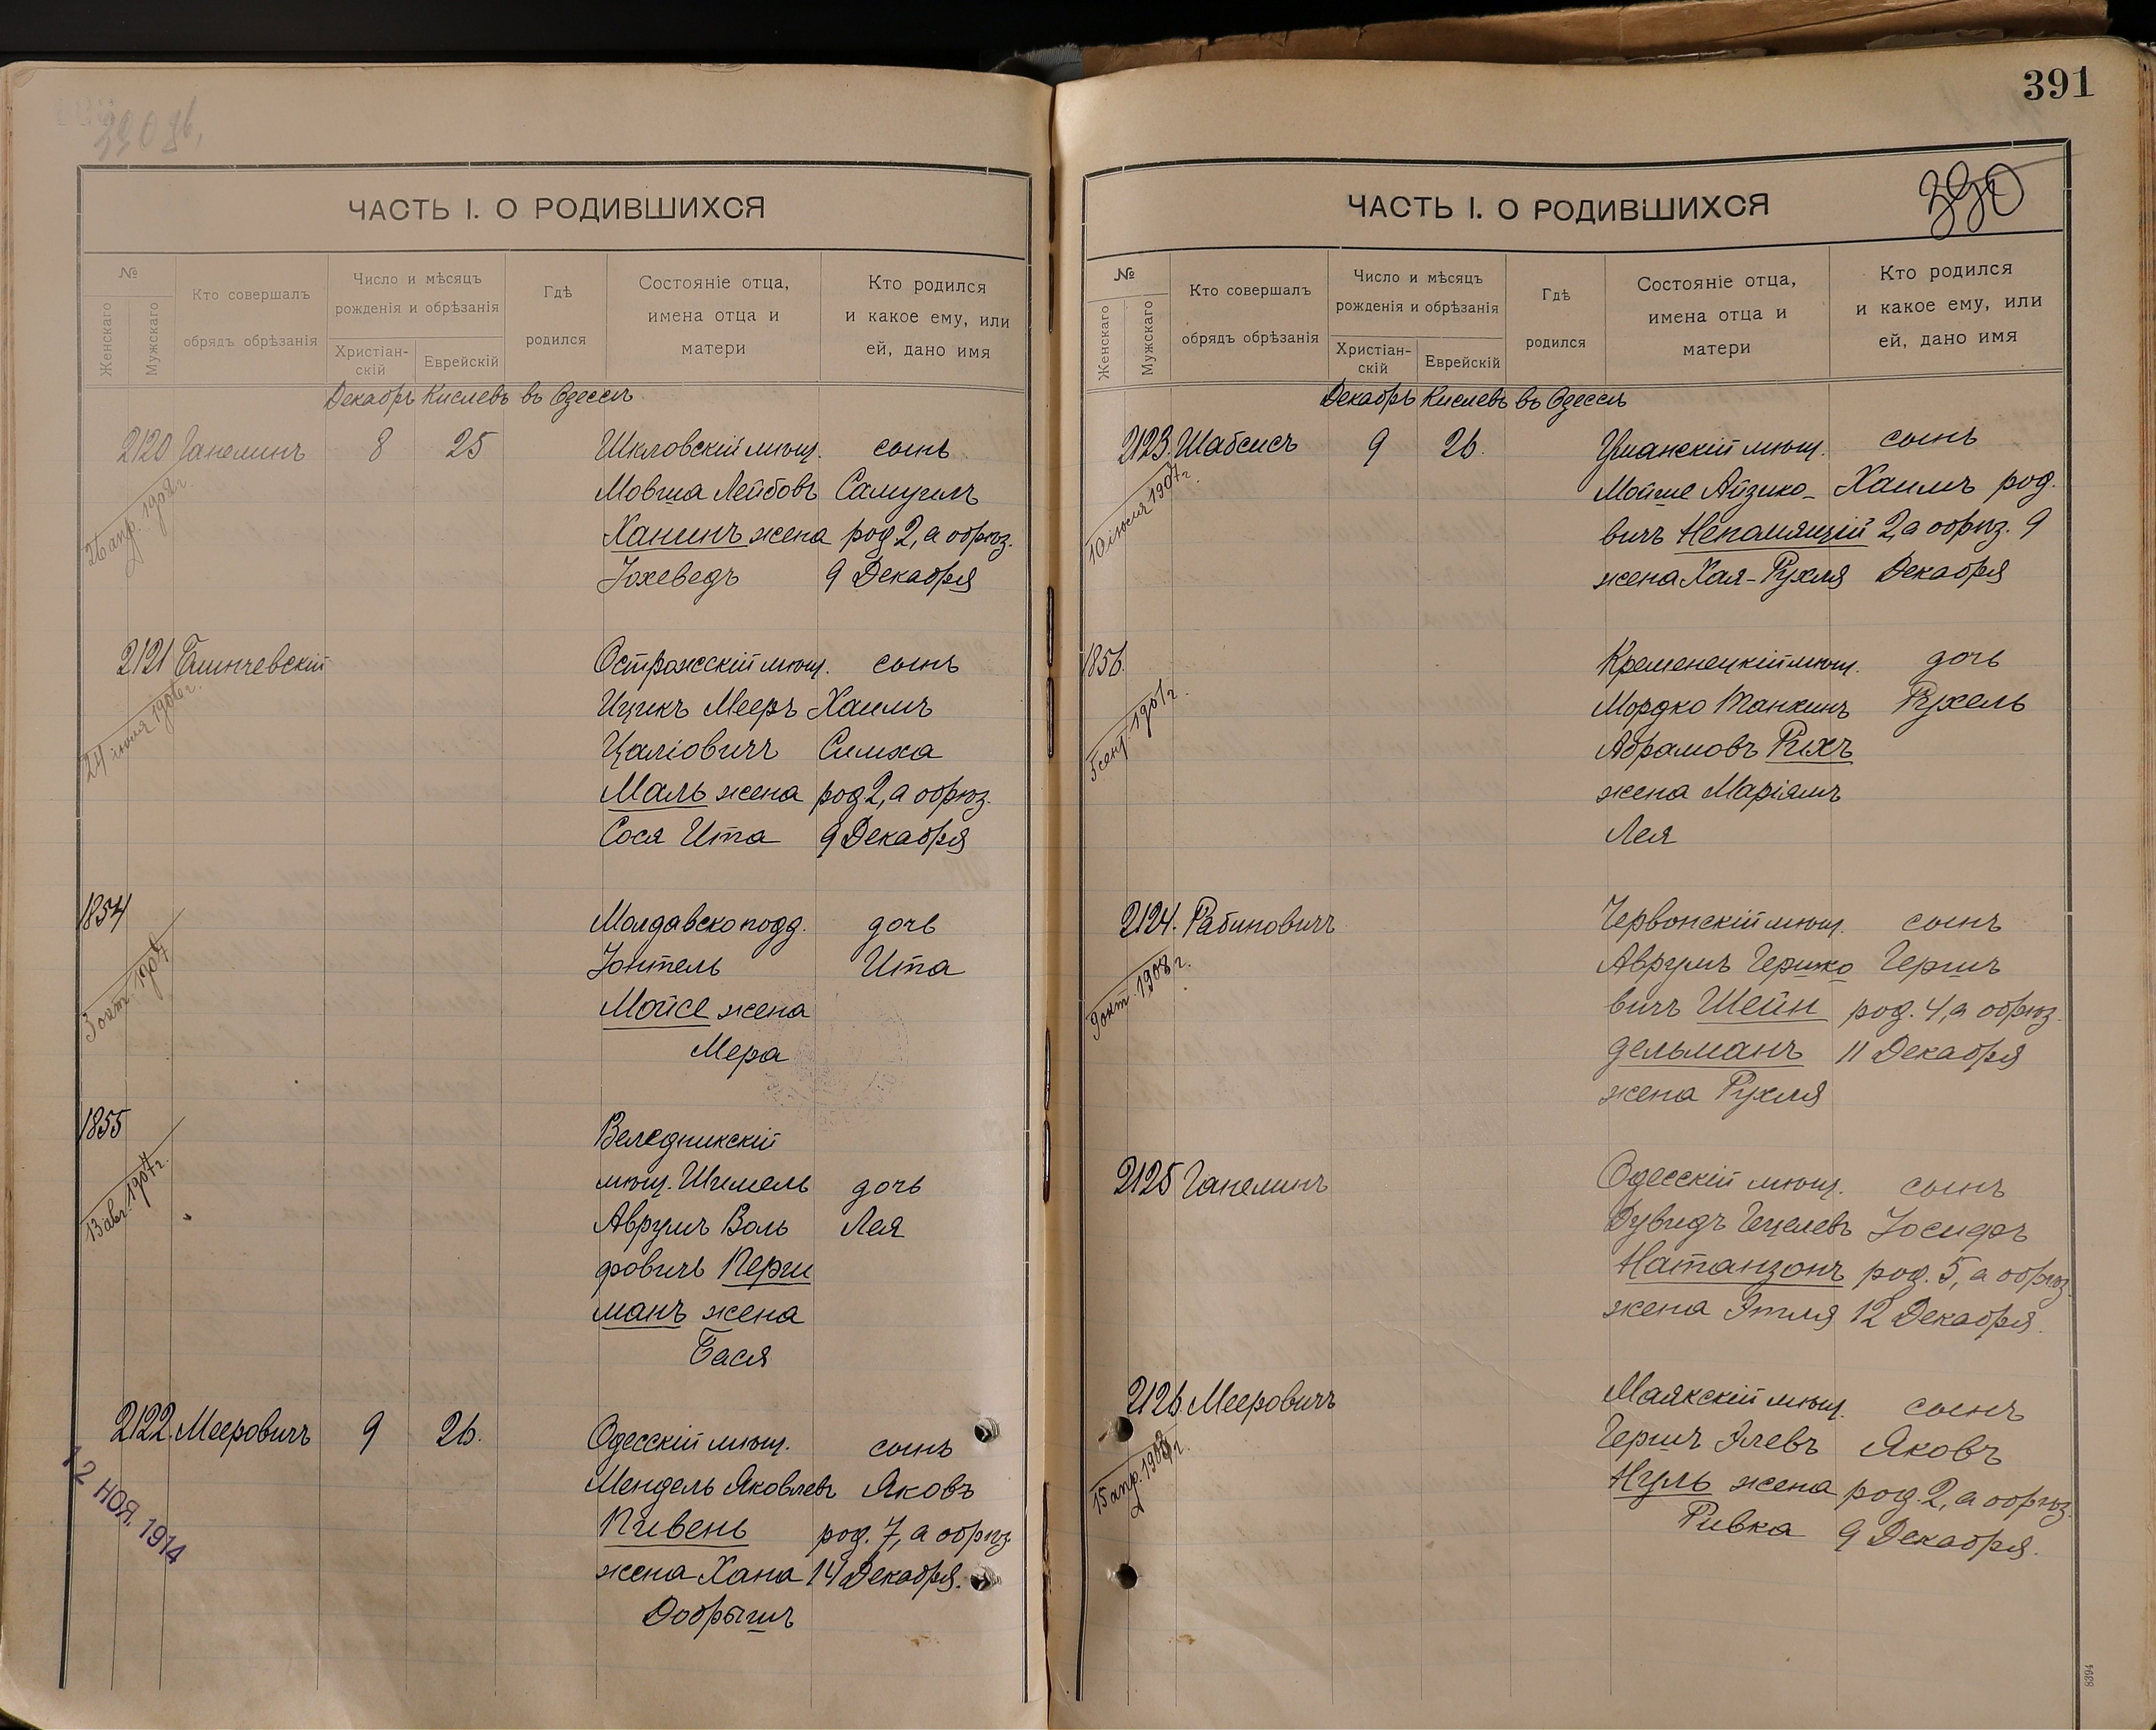 390 об.
ЧАСТЬ I. О РОДИВШИХСЯ
№
Женскаго
Мужскаго
Кто совершалъ
обрядъ обрѣзанія
Число и мѣсяцъ
рожденія и обрѣзанія
Христіан-
скій
Еврейскій
Гдѣ
родился
Состояніе отца,
имена отца и
матери
Кто родился
и какое ему, или
ей, дано имя
Декабрь Кислевъ въ Одессѣ
2120 Ганелинъ 8 25 Шкловскій мѣщ. сынъ
26 апр. 1908 г.
Мовша Лейбовъ Самуилъ
Ханинъ жена род 2, а обрѣз.
Іохеведъ 9 Декабря
2121 Блинчевскій Острожскій мѣщ. сынъ
24 іюля 1906 г.
Ицикъ Мееръ Хаимъ
Цаліовичъ Симха
Маль жена род 2, а обрѣз.
Сося Ита 9 Декабря
1854 Молдавскоподд. дочь
3 окт. 1907
Іонтель Ита
Мойсе жена
Мера
1855 Веледникскій
13 авг. 1907 г.
мѣщ. Шмель дочь
Аврумъ Воль Лея
фовичъ Перш
манъ жена
Бася
2122. Мееровичъ 9 26. Одесскій мѣщ. сынъ
12 НОЯ. 1914
Мендель Яковлевъ Яковъ
Пивень род. 7, а обрѣз
жена Хана 14 Декабря.
Добрышъ
391
390
ЧАСТЬ I. О РОДИВШИХСЯ
№
Женскаго
Мужскаго
Кто совершалъ
обрядъ обрѣзанія
Число и мѣсяцъ
рожденія и обрѣзанія
Христіан-
скій
Еврейскій
Гдѣ
родился
Состояніе отца,
имена отца и
матери
Кто родился
и какое ему, или
ей, дано имя
Декабрь Кислевъ въ Одессѣ
2123. Шабсисъ 9 26. Уманскій мѣщ. сынъ
1907 г.
Мойше Айзико- Хаимъ род.
вичъ Непомящій 2, а обрѣз. 9
жена Хая-Рухля Декабря
1856. Кременецкій мѣщ. дочь
5 сент. 1907 г.
Мордко Танхинъ Рухель
Абрамовъ Рихъ
жена Маріямъ
Лея
2124. Рабиновичъ Червонскій мѣщ. сынъ
9 окт. 1908 г.
Аврумъ Гершко Гершъ
вичъ Шейн род. 4, а обрѣз.
дельманъ 11 Декабря
жена Рухля
2125 Ганелинъ Одесскій мѣщ. сынъ
Дувидъ Гецелевъ Іосифъ
Натанзонъ род. 5, а обрѣз.
жена Этля 12 Декабря.
2126. Мееровичъ Маякскій мѣщ. сынъ
15 апр. 1908 г.
Гершъ Элевъ Яковъ
Нуль жена род. 2, а обрѣз.
Ривка 9 Декабря.
8394